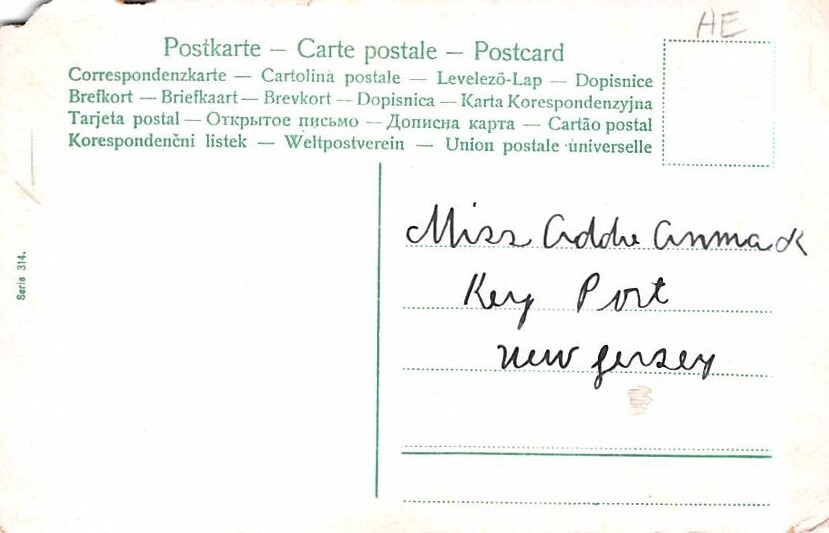 HE
Postkarte – Carte postale – Postcard
Correspondenzkarte — Cartolina postale — Levelező-Lap — Dopisnice
Brefkort — Briefkaart — Brevkort — Dopisnica — Karta Korespondenzyjna
Tarjeta postal — Открытое письмо — Дописна карта — Cartão postal
Korespondenčni listek — Weltpostverein — Union postale universelle
Miss Addie
Key Port
New Jersey
Serie 314.